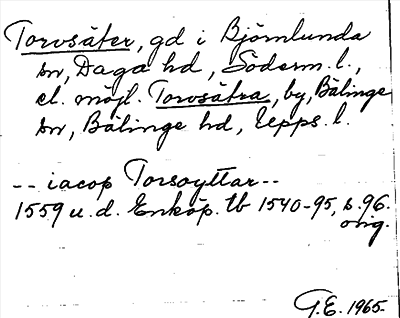 Torvsäter, gd i Björnlunda
sn, Daga hd, Söderm. l.,
el. möjl. Torvsätra, by, Bälinge
sn, Bälinge hd, Upps. l.
-- iacop Torsoyttar --
1559 u. d. Enköp. tb 1540-95, s. 96.
orig.
G.E. 1965.